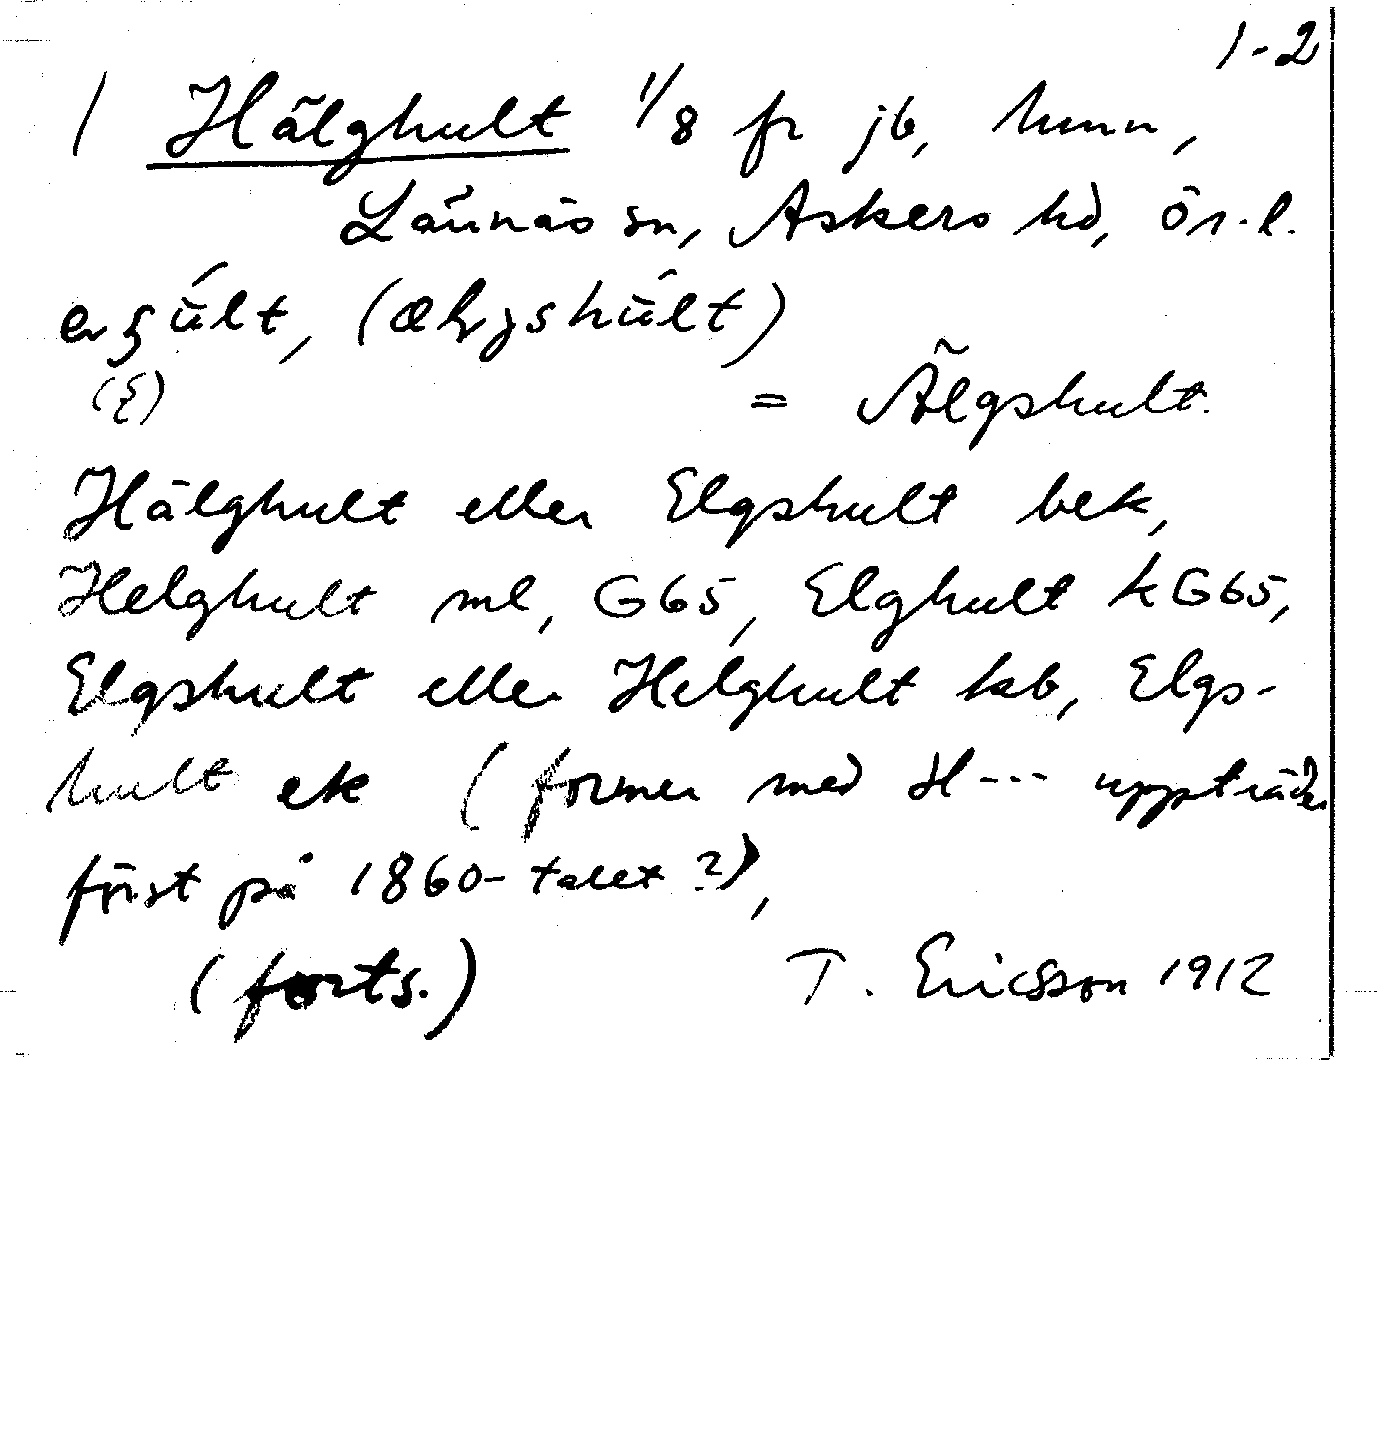 1-2
/ Hälghult 1/8 fr jb, hmn,
Lännäs sn, Askers hd, ör. l.
= Älgshult.
Hälghult eller Elgshult bek,
Helghult ml, G65, Elghult kG65,
Elgshult eller Helghult kb, Elgs-
hult ek (former med H--- uppträder
först på 1860-talet?),
(forts.) T. Ericsson 1912